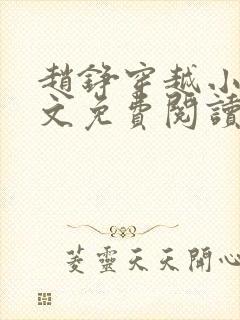 趙錚穿越小
文免費閱讀
菱靈天天開心